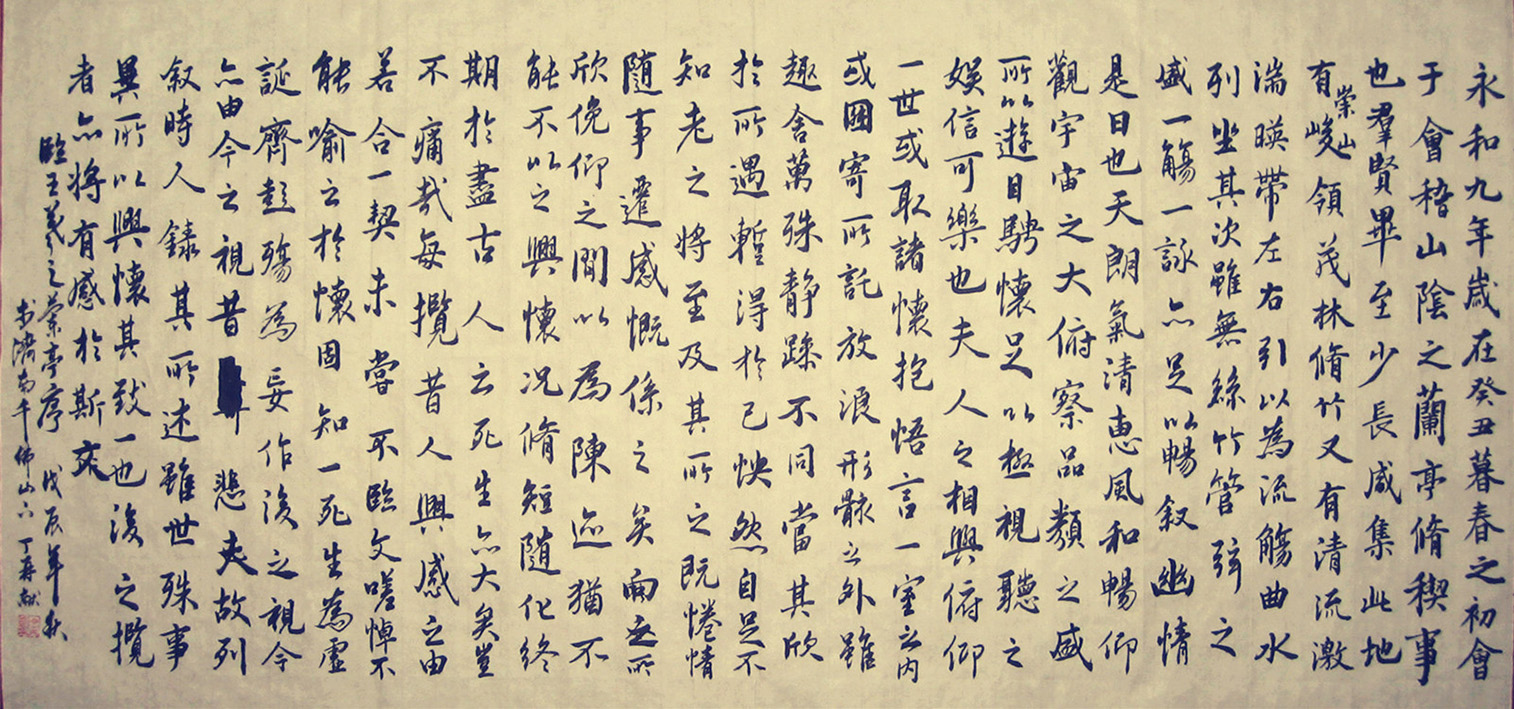 永和九年歲在癸丑暮春之初會
于會稽山陰之蘭亭脩稧事
也羣賢畢至少長咸集此地
有崇山峻領茂林脩竹又有清流激
湍暎帶左右引以為流觴曲水
列坐其次雖無絲竹管弦之
盛一觴一詠亦足以暢叙幽情
是日也天朗氣清惠風和暢仰
觀宇宙之大俯察品類之盛
所以遊目騁懷足以極視聽之
娛信可樂也夫人之相與俯仰
一世或取諸懷抱悟言一室之內
或因寄所託放浪形骸之外雖
趣舍萬殊静躁不同當其欣
於所遇蹔得於己怏然自足不
知老之將至及其所之既惓情
隨事遷感慨係之矣向之所
欣俛仰之間以為陳迹猶不
能不以之興懷況脩短隨化終
期於盡古人云死生亦大矣豈
不痛哉每攬昔人興感之由
若合一契未嘗不臨文嗟悼不
能喻之於懷固知一死生為虛
誕齊彭殤為妄作後之視今
亦由今之視昔悲夫故列
叙時人錄其所述雖世殊事
異所以興懷其致一也後之攬
者亦將有感於斯文
臨王羲之蘭亭序 戊辰年秋
书濟南千佛山下 丁再献